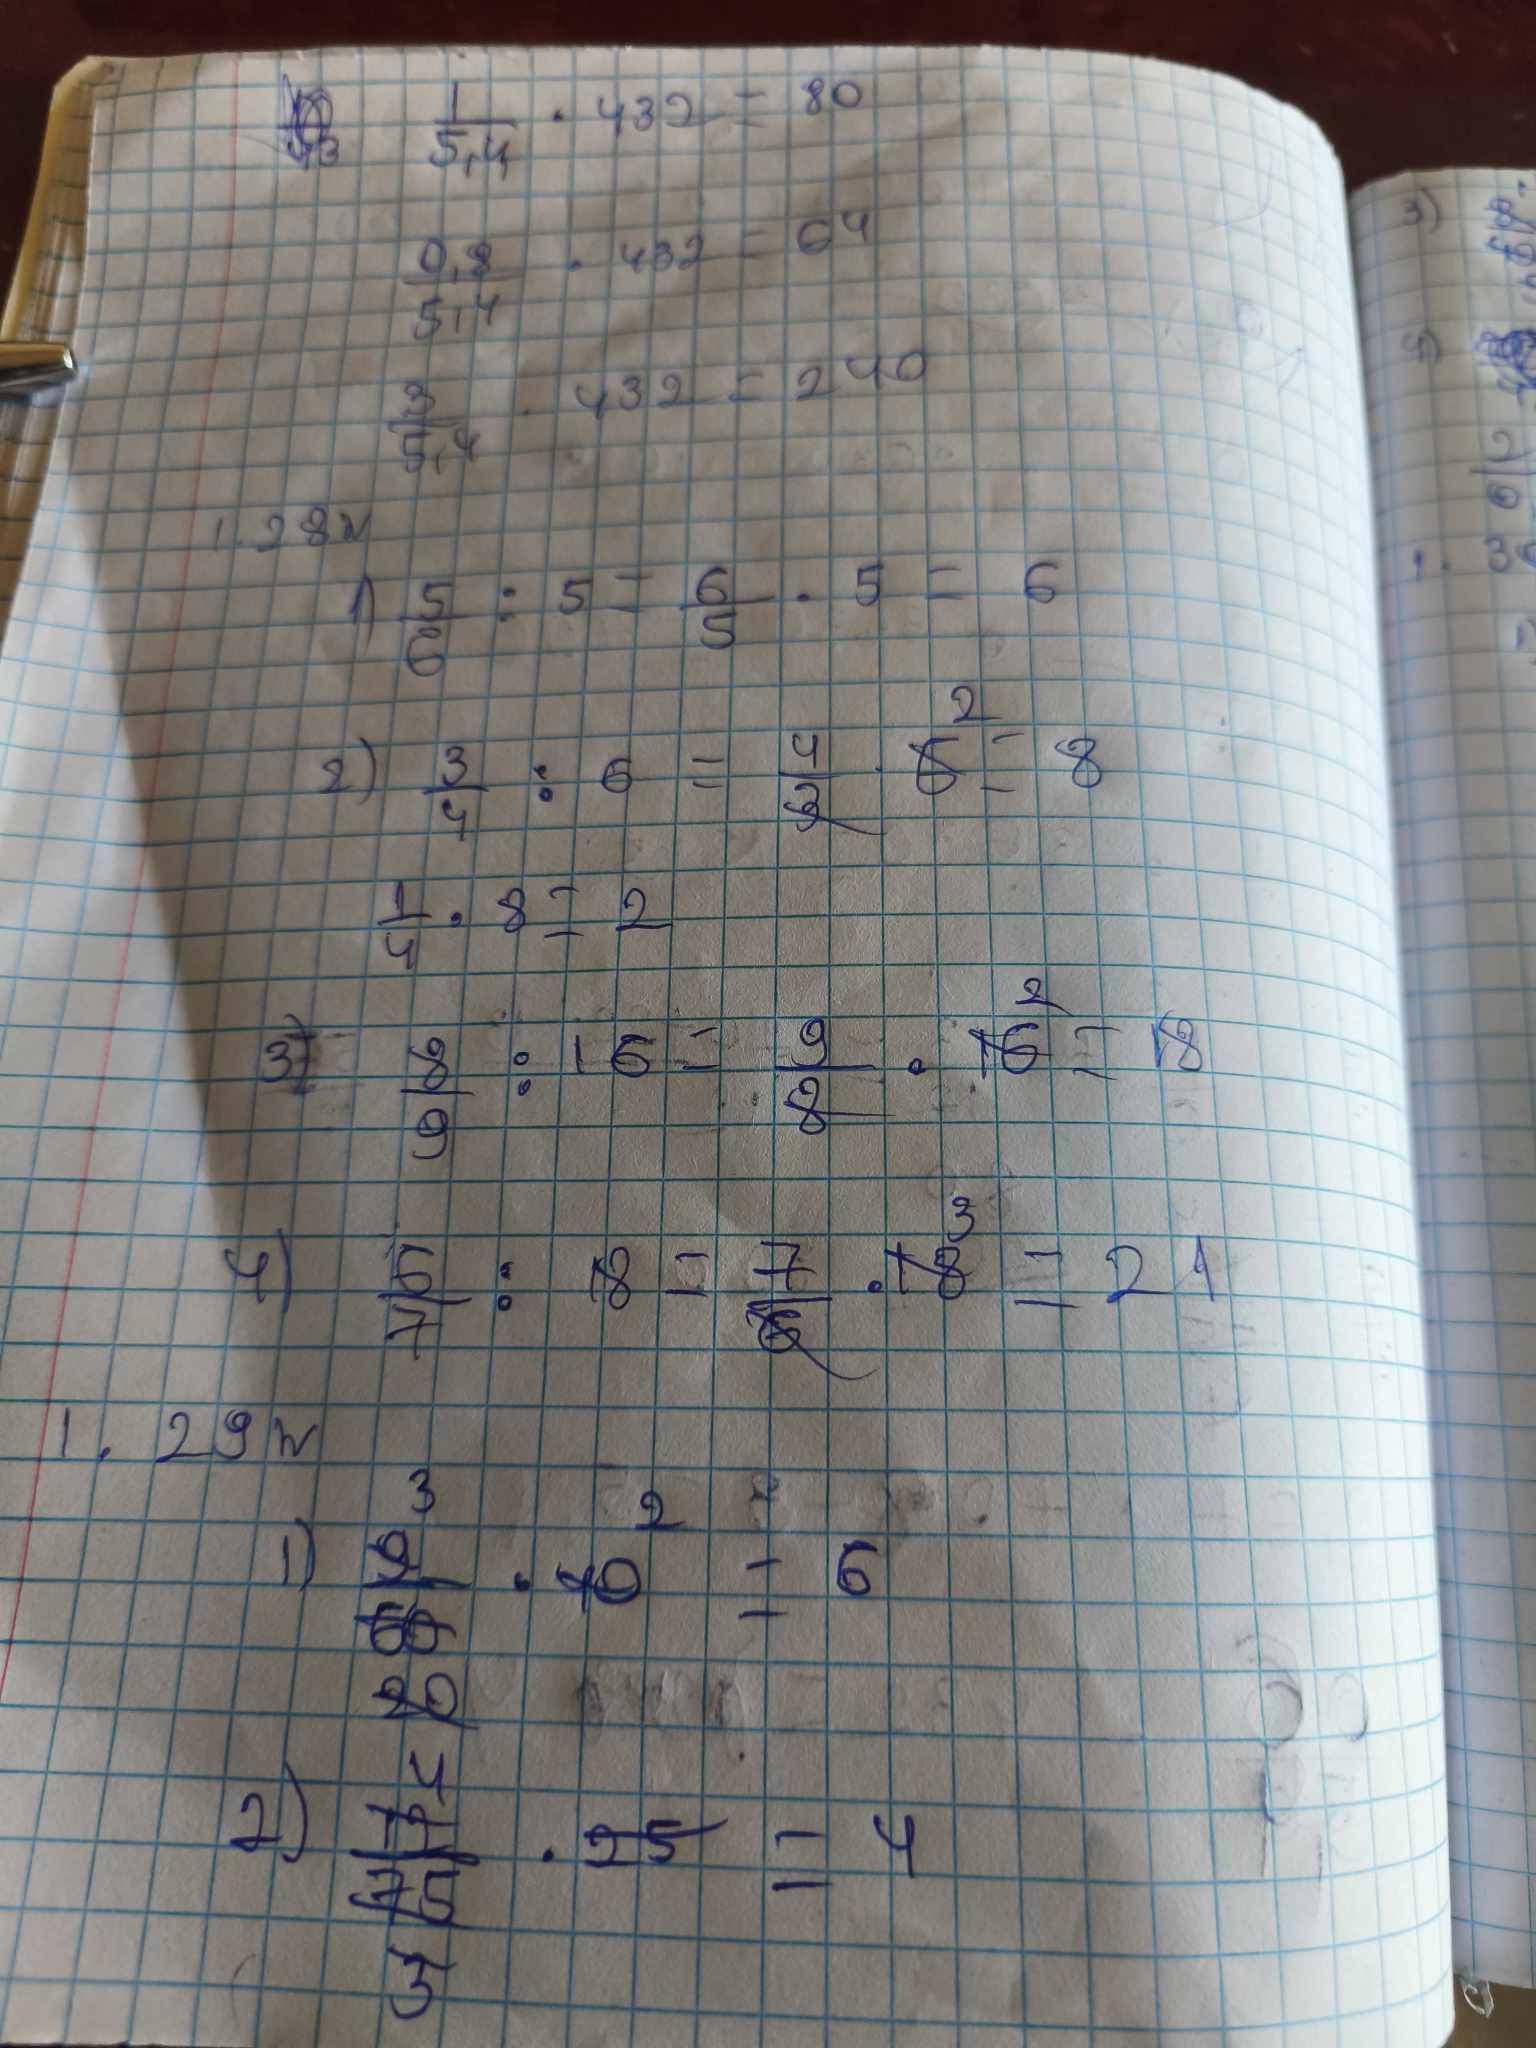 1/5,4 · 432 = 80
0,8/5,4 · 432 = 64
3/5,4 · 432 = 240
1. 28 и
1) 5/6 : 5 = 6/5 · 5 = 6
2) 3/4 : 6 = 4/3 · 6 2 = 8
1/4 · 8 = 2
3) 8/9 : 16 = 9/8 · 16 2 = 18
4) 6/7 : 18 = 7/6 · 18 3 = 21
1. 29 и
3 2
1) 9/60 · 40 = 6
20
4
2) /75 · 25 = 4
3
3)
1. 3